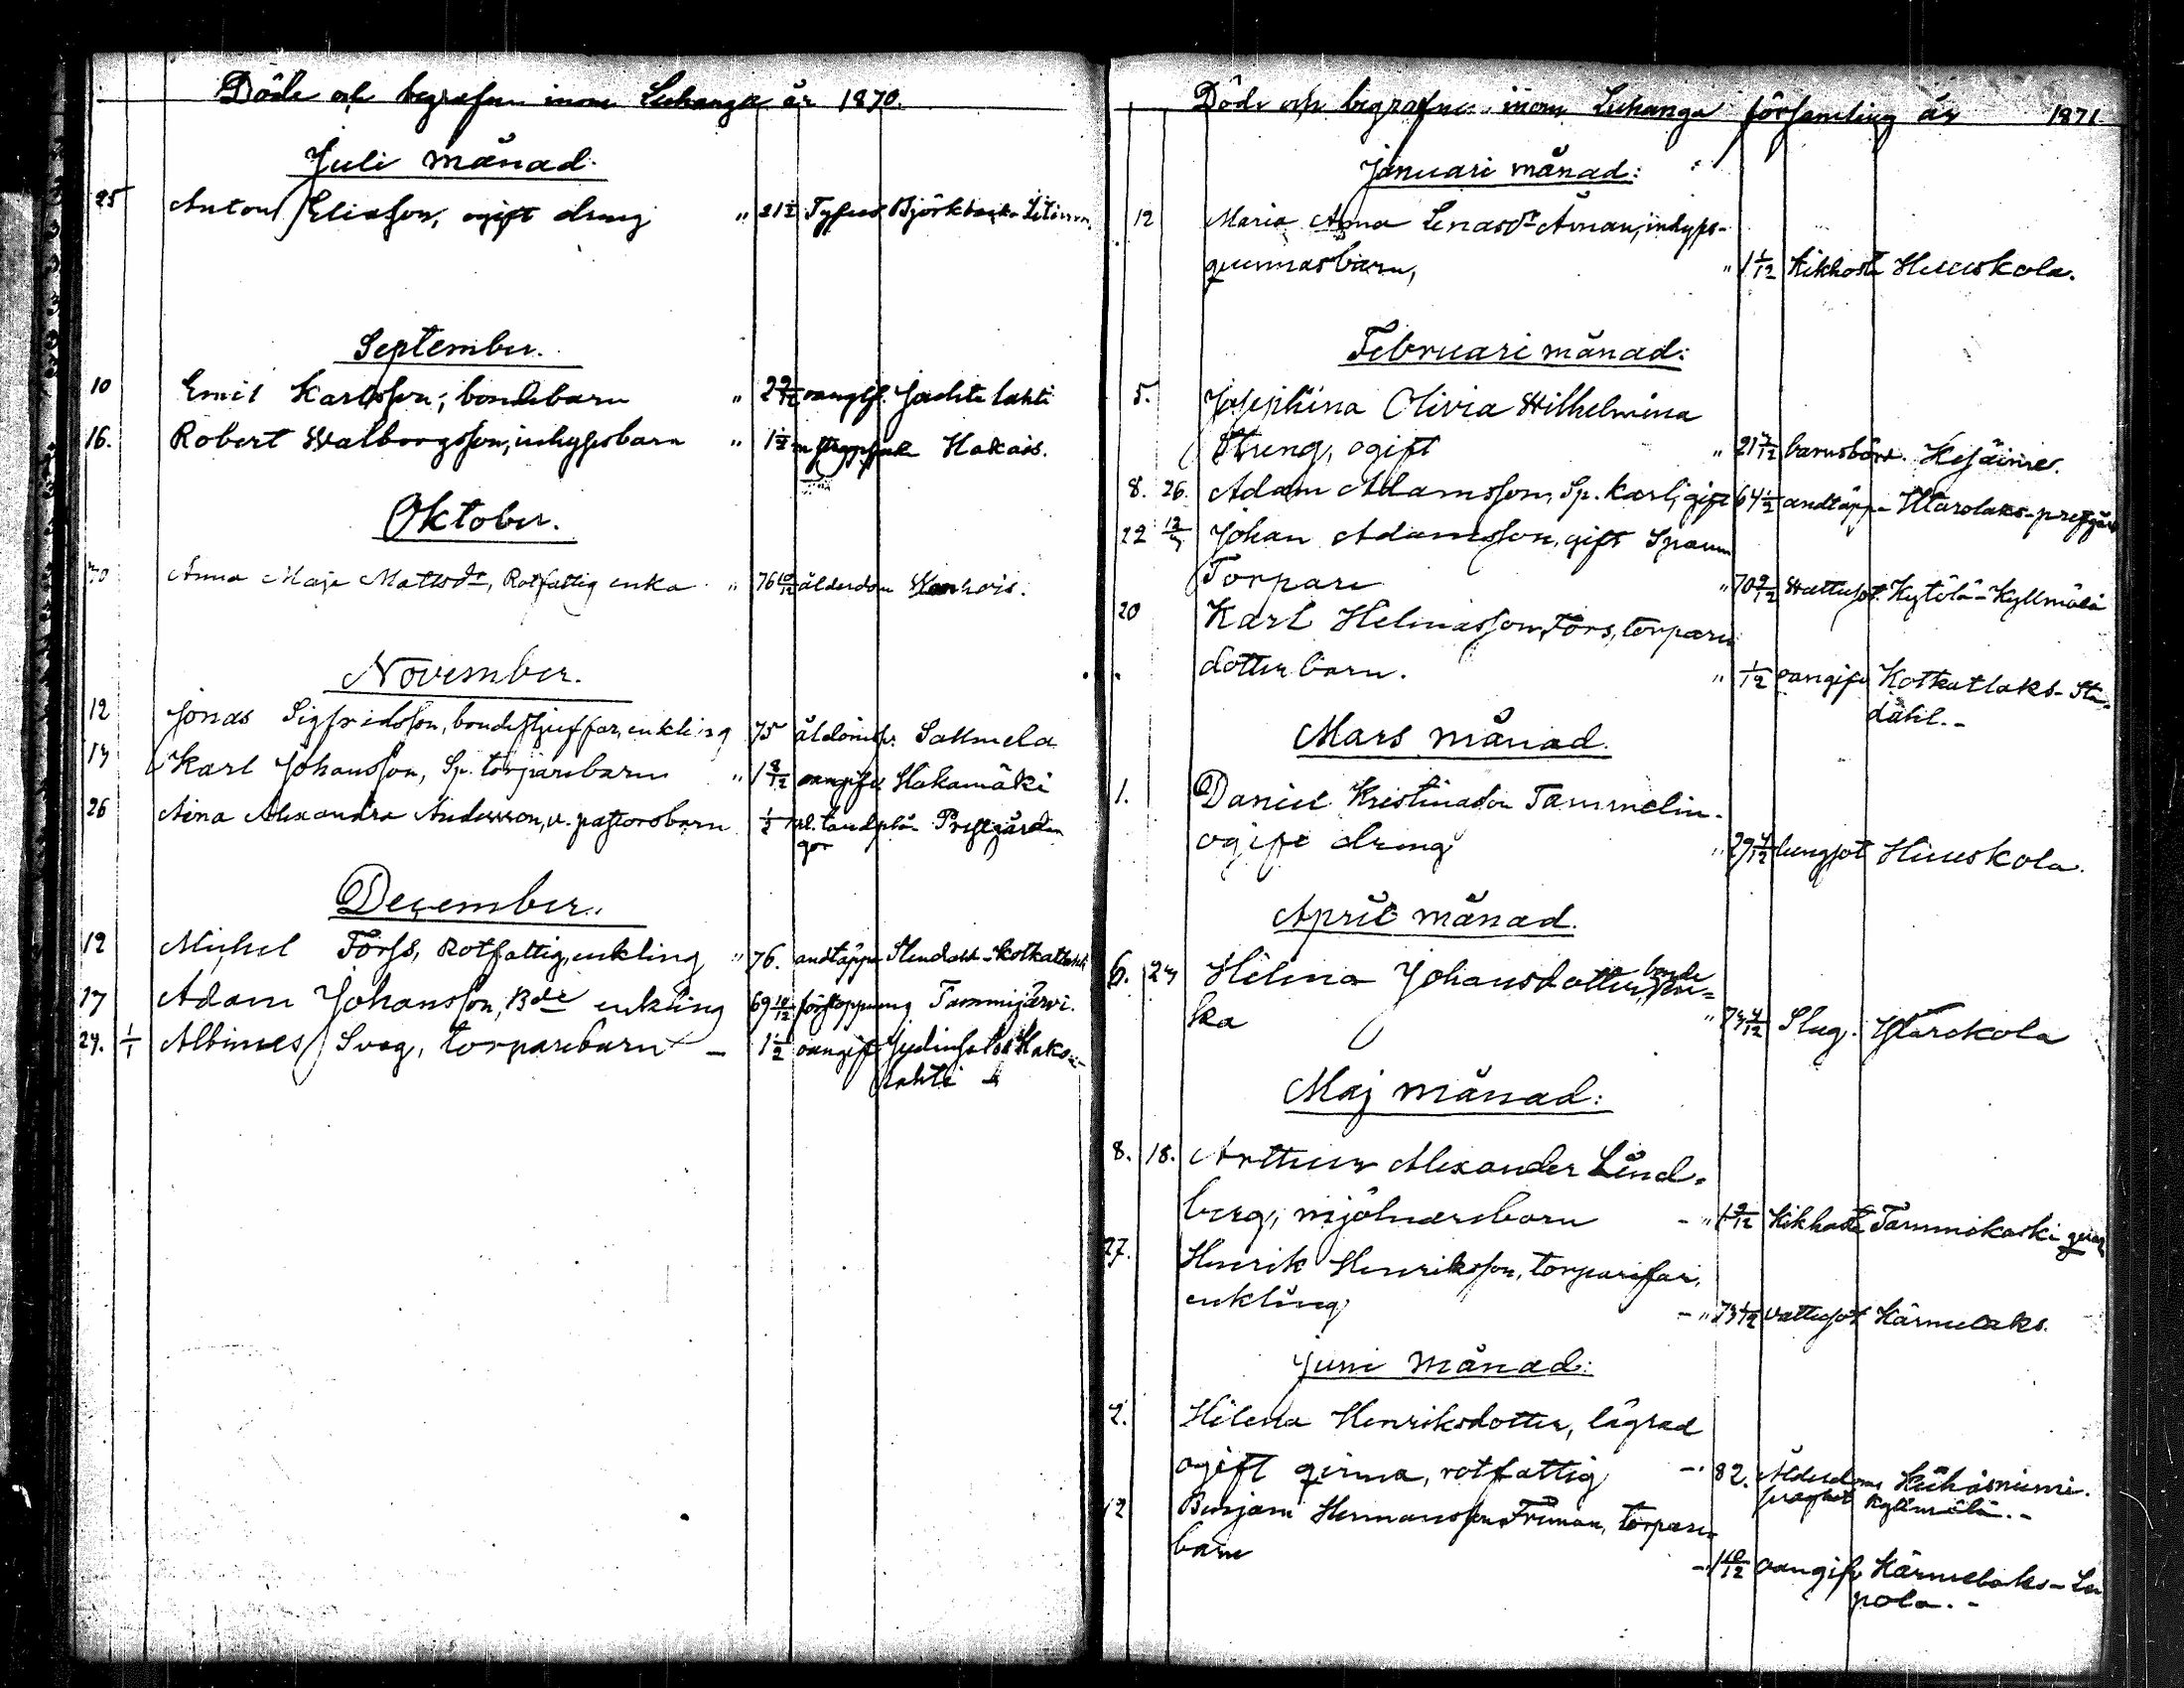 Döde och begrafne inom Luhanga år 1870.
Juli månad.
25 Anton Eliasson, ogift dräng " 21 1/2 Tyfus Björkbacka
September.
10 Emil Karlsson, bondebarn " 2 9/12 oangif. Jachtelahti
16. Robert Walborgsson, inhysesbarn " 1 1/2 Hakais.
Oktober.
30 Anna Maja Mattsdr, Rotfattig enka " 76 10/12 ålderdom Wanhois.
November.
12 Jonas Sigfridsson, bondestjuffar, enkling 75 Salmela
14 Karl Johansson, Sp. torparebarn " 1 8/12 oangifv. Hakamäki
26 Aina Alexandra Andersson, v. pastorsbarn 1/2 Prestgården
December.
12 Michel Förss, Rotfattig, enkling " 76. andtäppa Stendahl-Kotkatlahti
17 Adam Johansson, Bde enkling 69 10/12 förstoppning Tammijärvi.
29. 1/1 Albinus Svag, torparebarn - 1 1/2 oangift
lahti
Döde och begrafne inom Luhanga församling år 1871.
Januari månad:
12 Maria Anna Lenasdr Åman, inhyses-
qvinnasbarn, " 1 1/12 Kikhosta Hiuskola.
Februari månad:
5. Josephina Olivia Wilhelmina
Streng, ogift " 21 7/12 barnsbörd. Kesäinie.
8. 26. Adam Adamsson, Sp. karl, gift 64 1/2 andtäppa
22 12/3 Johan Adamsson, gift Spann
Torpare " 70 9/12 Wattusot. Kytölä-Kyllmälä
20 Karl Helenasson, Förs, torpare
dotterbarn. " 1/12 oangifv. Kotkatlaks-Sten
dahl.-
Mars månad.
1. Daniel Kristinason Tammelin
ogift dräng " 29 4/12 lungsot Hiuskola.
April månad.
6. 24 Helena Johansdotter, bonde en-
ka " 73 4/12 Slag. Ylärckola
Maj månad:
8. 18. Arthur Alexander Lind-
berg, mjölnarebarn - " 1 9/12 Kikhosta Tammikoski qvarn
27. Henrik Henriksson, torparefar,
enkling - " 73 1/12 vattusot Kärmelaks.
Juni månad:
2. Helena Henriksdotter, lägrad
ogift qvinna, rotfattig - 82. Ålderdoms Keihäsniemi.
svaghet Kyllmälä.-
12 Benjam Hermansson Friman, torpare
barn - 1 10/12 oangifv Kärmelaks-Le
pola.-